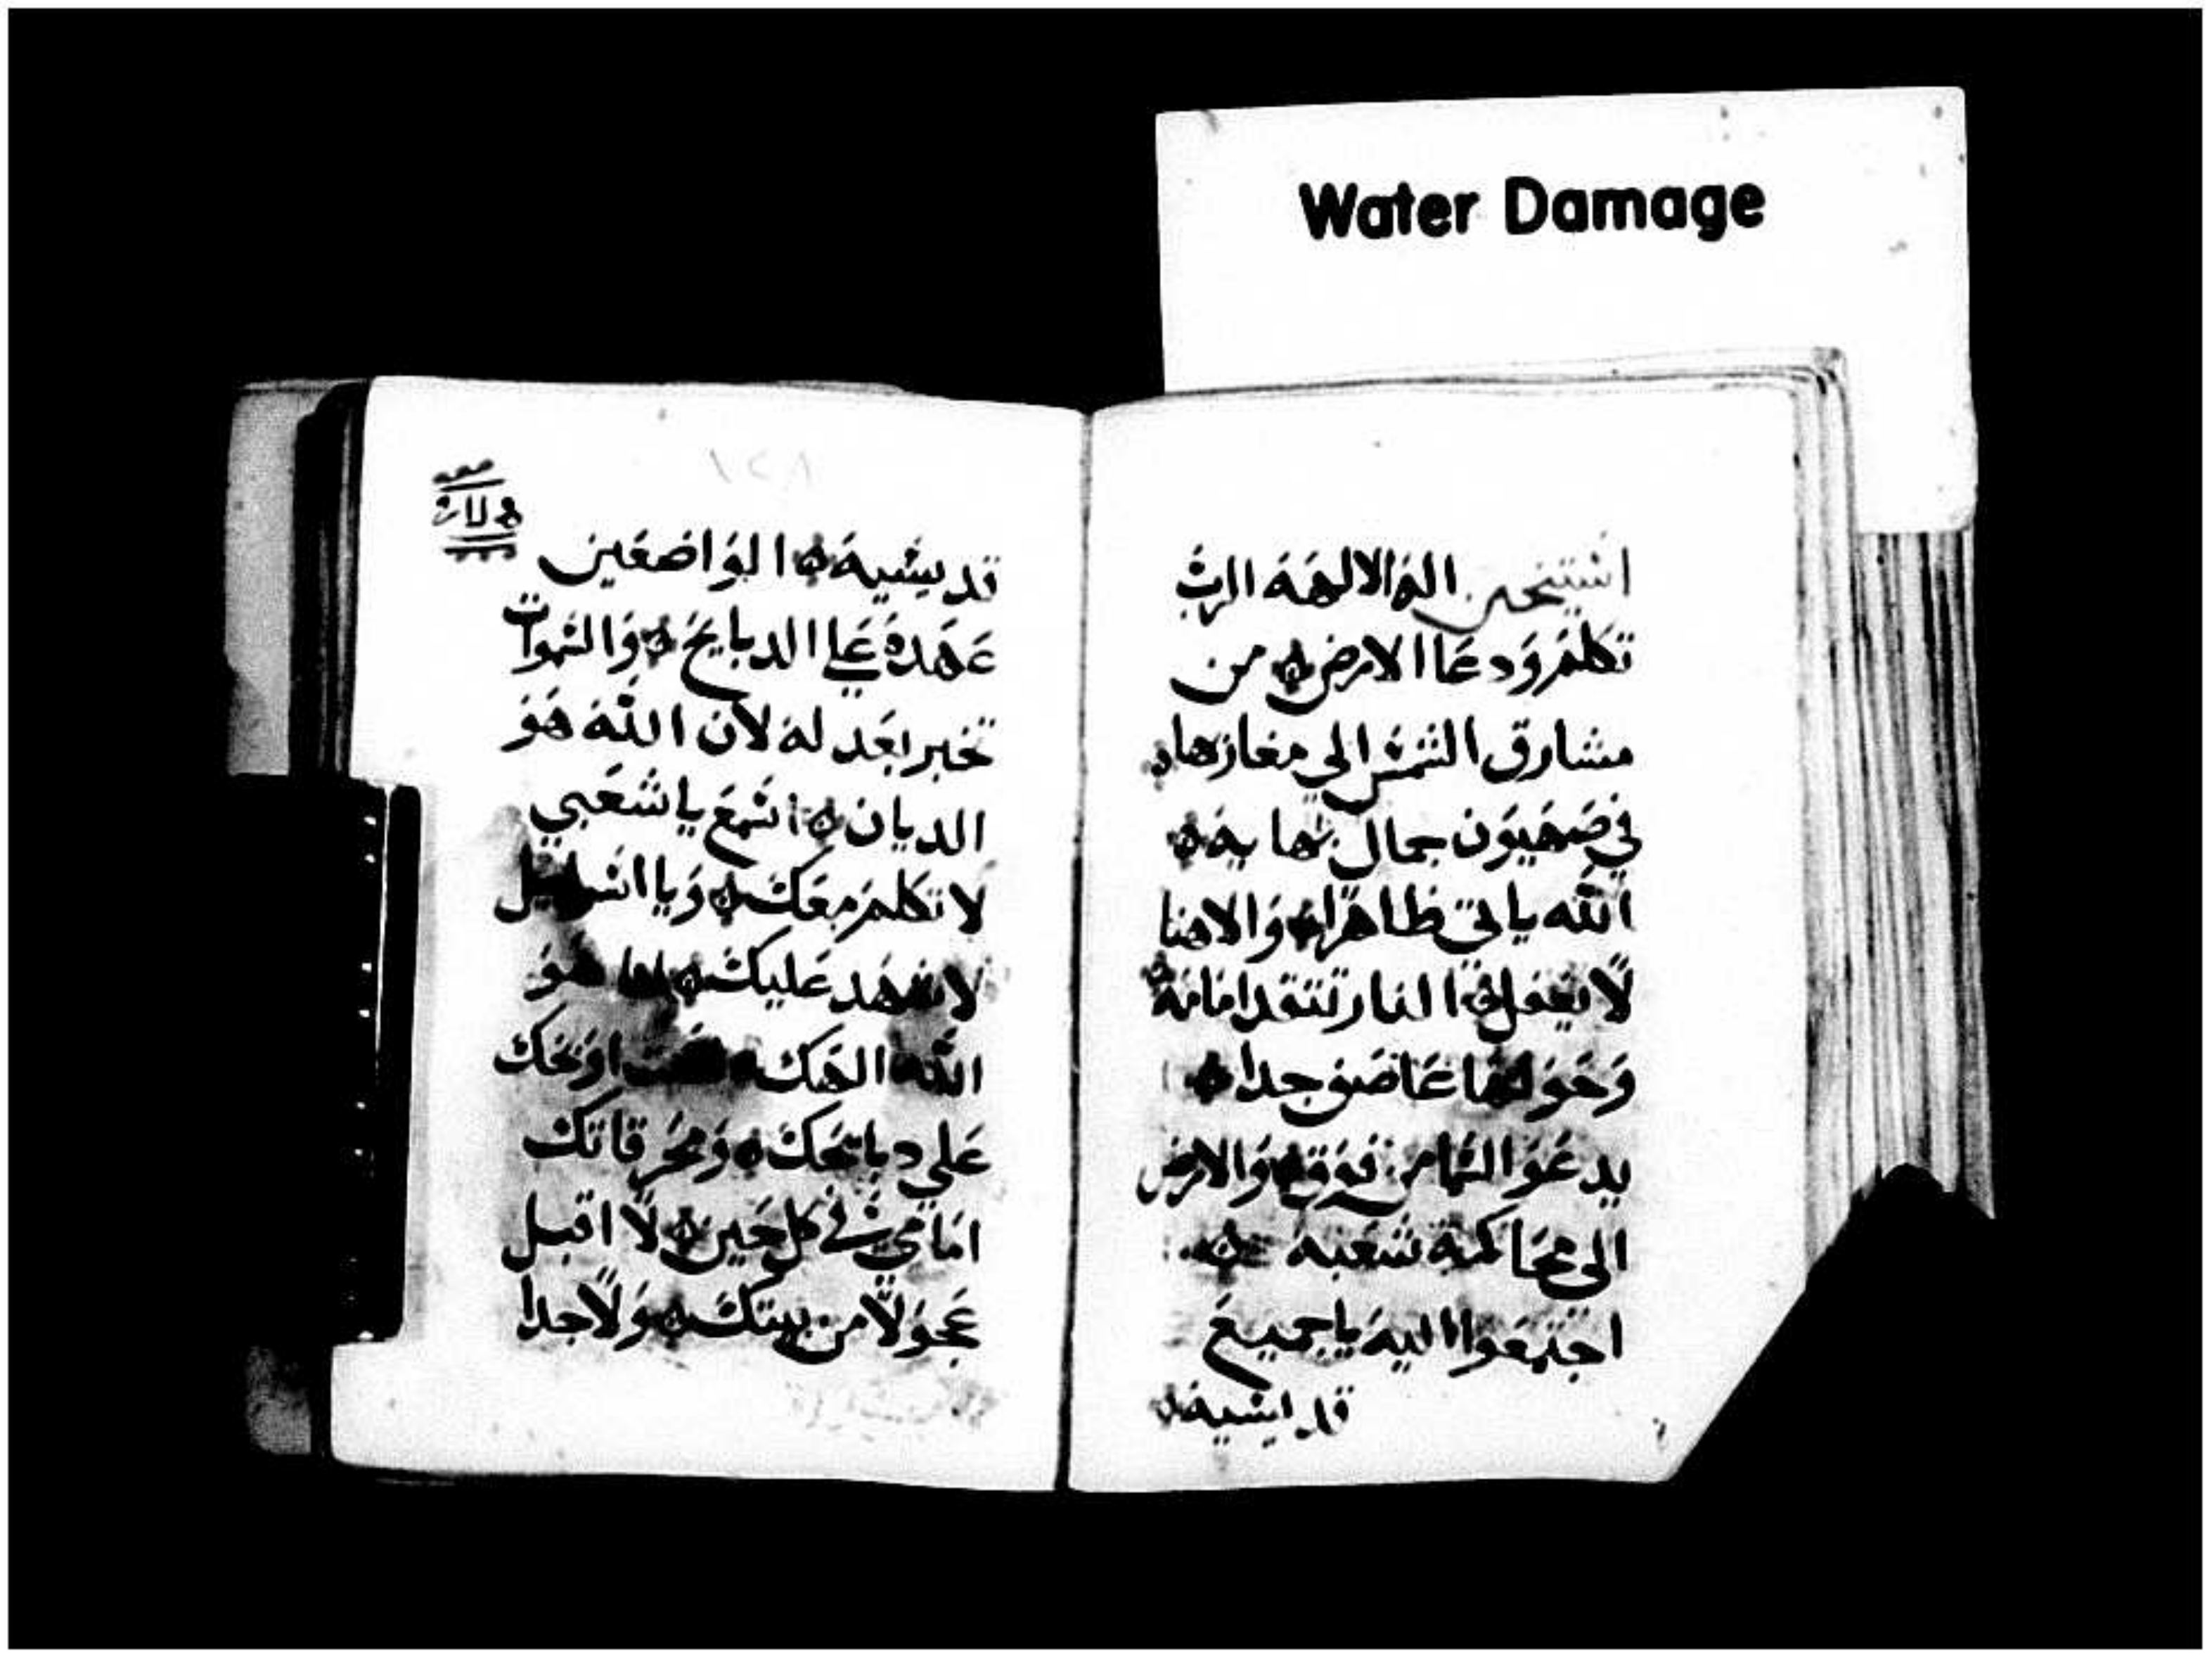 Water Damage
اله الالهه الرب
تكلم ودعا الارض من
مشارق الشمس الي مغاربها
في صهيون جمال بهايه
الله ياتي ظاهرا والاهنا
لا يغفل النار تتقد امامه
وحولها عاصف جدا
يدعو السما من فوق والارض
الي محاكمة شعبه
اجتمعوا اليه يا جميع
قديسيه
١٢٨
قديسيه الواضعين
عهده علي الدبايح والسموات
تخبر بعدله لان الله هو
الديان اسمع يا شعبي
لاتكلم معك ويا اسراييل
لاشهد عليك انا هو
الله الهك لست اوبخك
علي دبايحك ومحرقاتك
امامي في كل حين لا اقبل
عجولا من بيتك ولا جدا